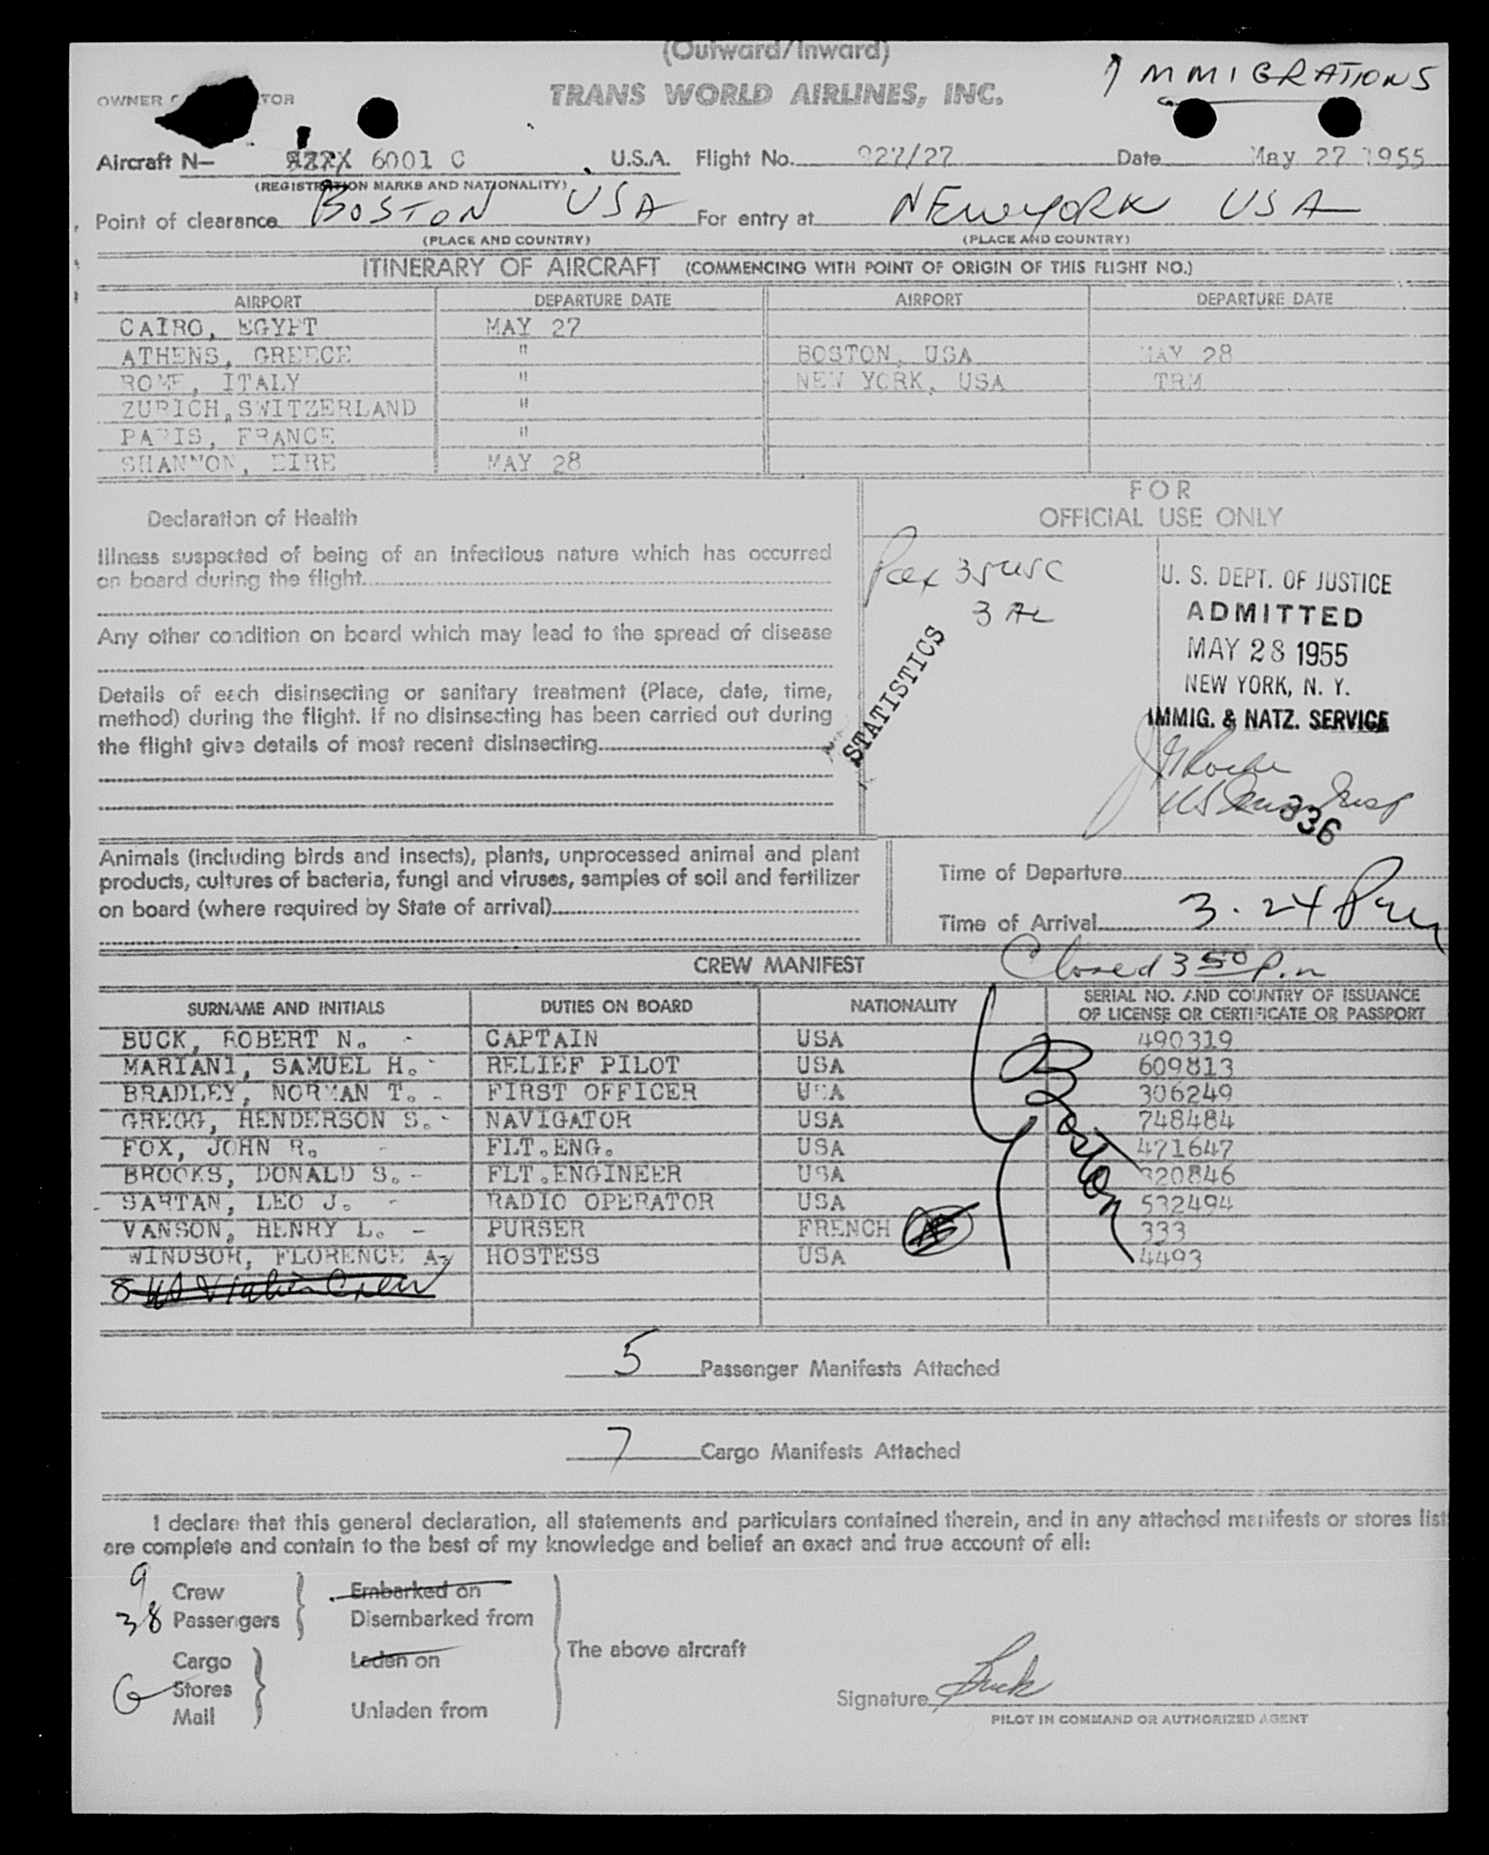 (Outward/Inward)
IMMIGRATIONS
OWNER
TRANS WORLD AIRLINES, INC.
Aircraft N— 6001 C U.S.A. Flight No. 927/27 Date May 27 1955
(REGISTRATION MARKS AND NATIONALITY)
Point of clearance BOSTON USA For entry at NEW YORK USA
(PLACE AND COUNTRY) (PLACE AND COUNTRY)
ITINERARY OF AIRCRAFT (COMMENCING WITH POINT OF ORIGIN OF THIS FLIGHT NO.)
AIRPORT DEPARTURE DATE AIRPORT DEPARTURE DATE
CAIRO, EGYPT MAY 27
ATHENS, GREECE " BOSTON, USA MAY 28
ROME, ITALY " NEW YORK, USA TRM
ZURICH, SWITZERLAND "
PARIS, FRANCE "
SHANNON, EIRE MAY 28
FOR
OFFICIAL USE ONLY
Declaration of Health
Illness suspected of being of an infectious nature which has occurred
on board during the flight
Any other condition on board which may lead to the spread of disease
Details of each disinsecting or sanitary treatment (Place, date, time,
method) during the flight. If no disinsecting has been carried out during
the flight give details of most recent disinsecting
Pax 35 USC
3 AL
STATISTICS
U. S. DEPT. OF JUSTICE
ADMITTED
MAY 28 1955
NEW YORK, N. Y.
IMMIG. & NATZ. SERVICE
336
Animals (including birds and insects), plants, unprocessed animal and plant
products, cultures of bacteria, fungi and viruses, samples of soil and fertilizer
on board (where required by State of arrival)
Time of Departure
Time of Arrival 3.24 Pm
CREW MANIFEST Closed 3 50 P.m
SURNAME AND INITIALS DUTIES ON BOARD NATIONALITY SERIAL NO. AND COUNTRY OF ISSUANCE
OF LICENSE OR CERTIFICATE OR PASSPORT
BUCK, ROBERT N. - CAPTAIN USA 490319
MARIANI, SAMUEL H. - RELIEF PILOT USA 609813
BRADLEY, NORMAN T. - FIRST OFFICER USA 306249
GREGG, HENDERSON S. - NAVIGATOR USA 748484
FOX, JOHN R. - FLT.ENG. USA 471647
BROOKS, DONALD S. - FLT.ENGINEER USA 320846
SARTAN, LEO J. - RADIO OPERATOR USA 532494
VANSON, HENRY L. - PURSER FRENCH 333
WINDSOR, FLORENCE A. HOSTESS USA 4493
Boston
5 Passenger Manifests Attached
7 Cargo Manifests Attached
I declare that this general declaration, all statements and particulars contained therein, and in any attached manifests or stores list
are complete and contain to the best of my knowledge and belief an exact and true account of all:
9 Crew
38 Passengers
Embarked on
Disembarked from
Cargo
Stores
Mail
Laden on
Unladen from
The above aircraft
Signature Buck
PILOT IN COMMAND OR AUTHORIZED AGENT